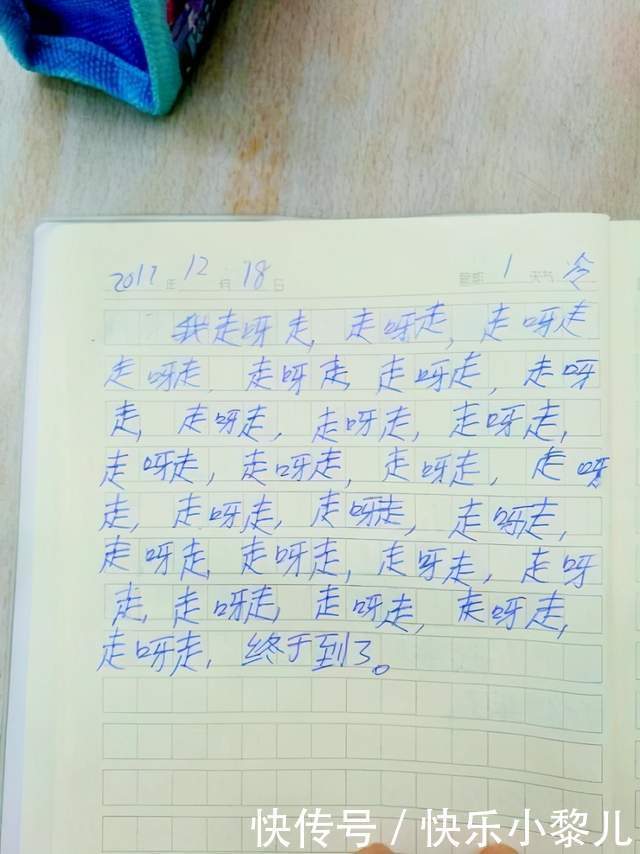 2017年12月18日 星期1 天气冷
我走呀走,走呀走,走呀走
走呀走,走呀走,走呀走,走呀
走,走呀走,走呀走,走呀走,
走呀走,走呀走,走呀走,走呀
走,走呀走,走呀走,走呀走,
走呀走,走呀走,走呀走,走呀
走,走呀走,走呀走,走呀走,
走呀走,终于到了。
快传号/快乐小黎儿